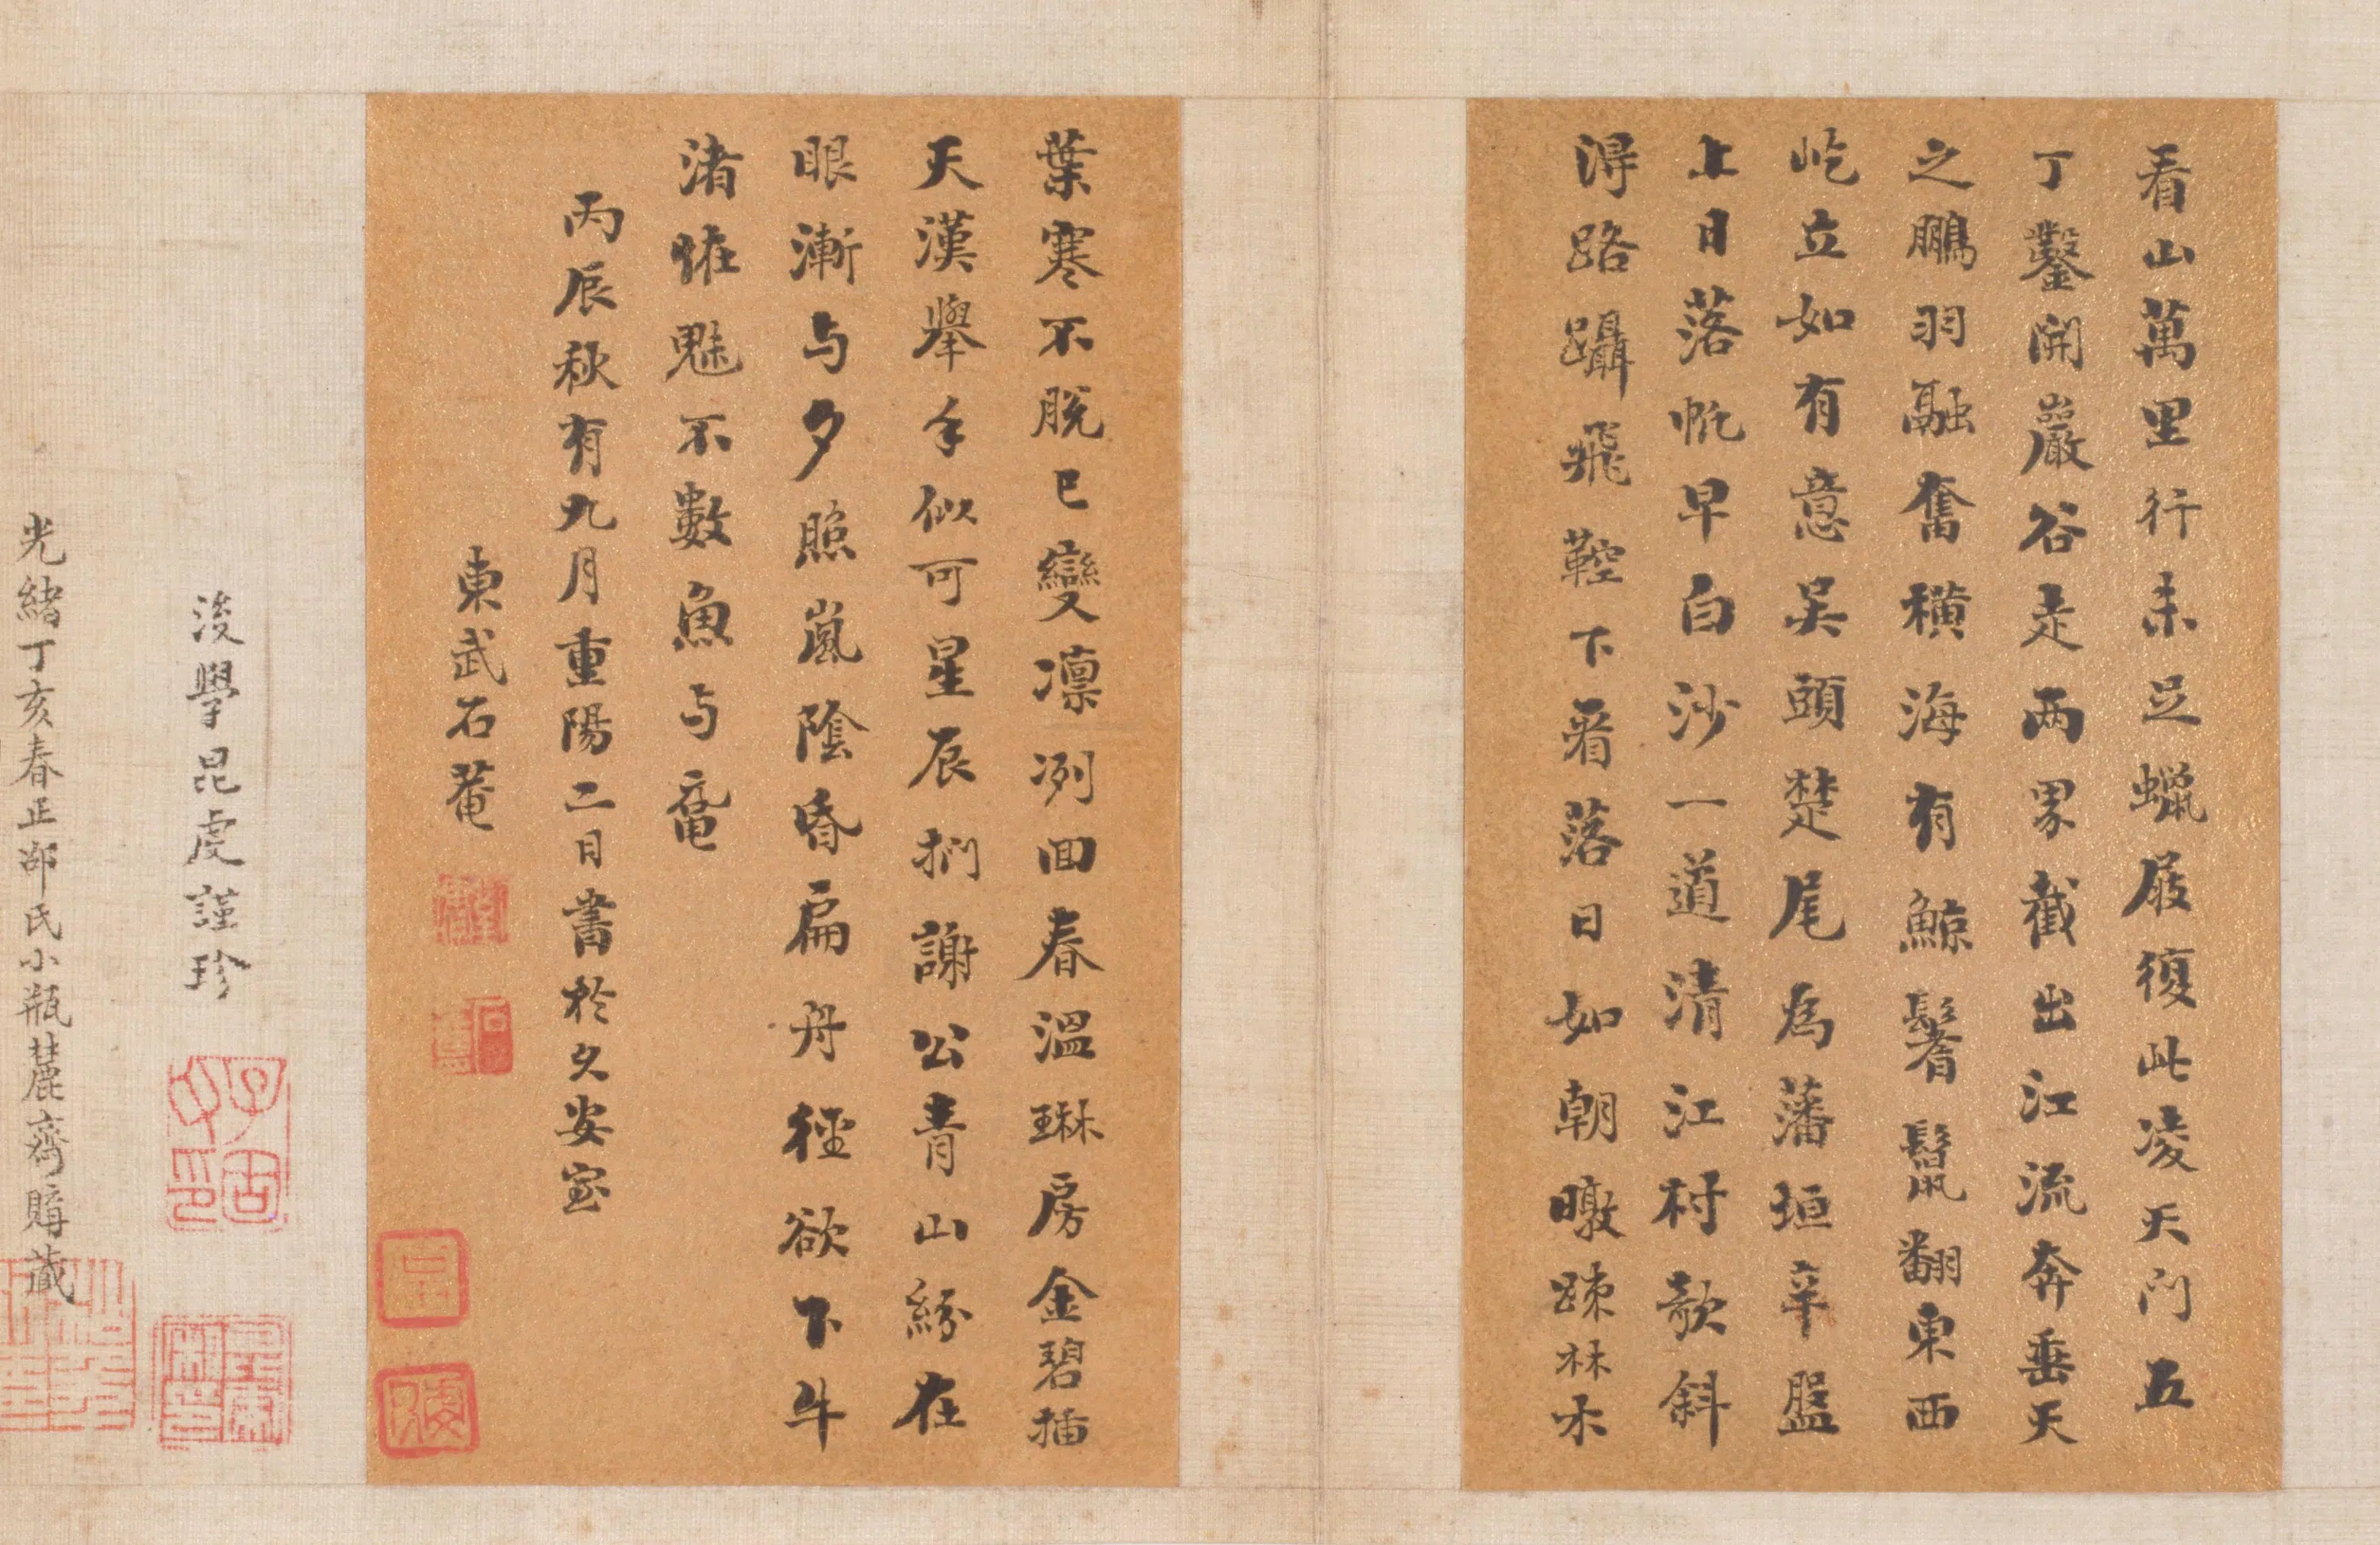 看山萬里行未足蠟屐復此凌天门五
丁鑿開巖谷走两界截出江流奔垂天
之鵬羽融奮橫海有鯨鬐鬣翻東西
屹立如有意吴頭楚尾為藩垣辛盤
上日落帆早白沙一道清江村欹斜
得路躡飛鞚下看落日如朝暾踈林木
葉寒不脫已變凛冽回春溫琳房金碧插
天漢舉手似可星辰捫謝公青山紛在
眼漸与夕照嵐陰昏扁舟徑欲下牛
渚恠魅不數魚与黿
丙辰秋有九月重陽二日書於久安室
東武石菴
後學昆虔謹珍
光緒丁亥春正邵氏小瓶麓齋購藏